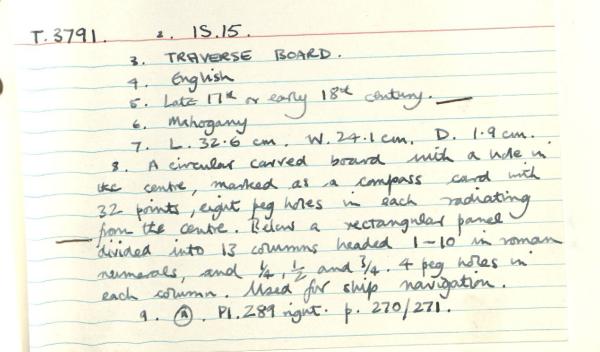 T.3791. 2. IS.15.
3. TRAVERSE BOARD.
4. English
5. Late 17th or early 18th century.
6. Mahogany
7. L. 32.6 cm. W. 24.1 cm. D. 1.9 cm.
8. A circular carved board with a hole in
the centre, marked as a compass card with
32 points, eight peg holes in each radiating
from the centre. Below a rectangular panel
divided into 13 columns headed 1-10 in roman
numerals, and 1/4, 1/2 and 3/4. 4 peg holes in
each column. Used for ship navigation.
9. (A). Pl. 289 right. p. 270/271.